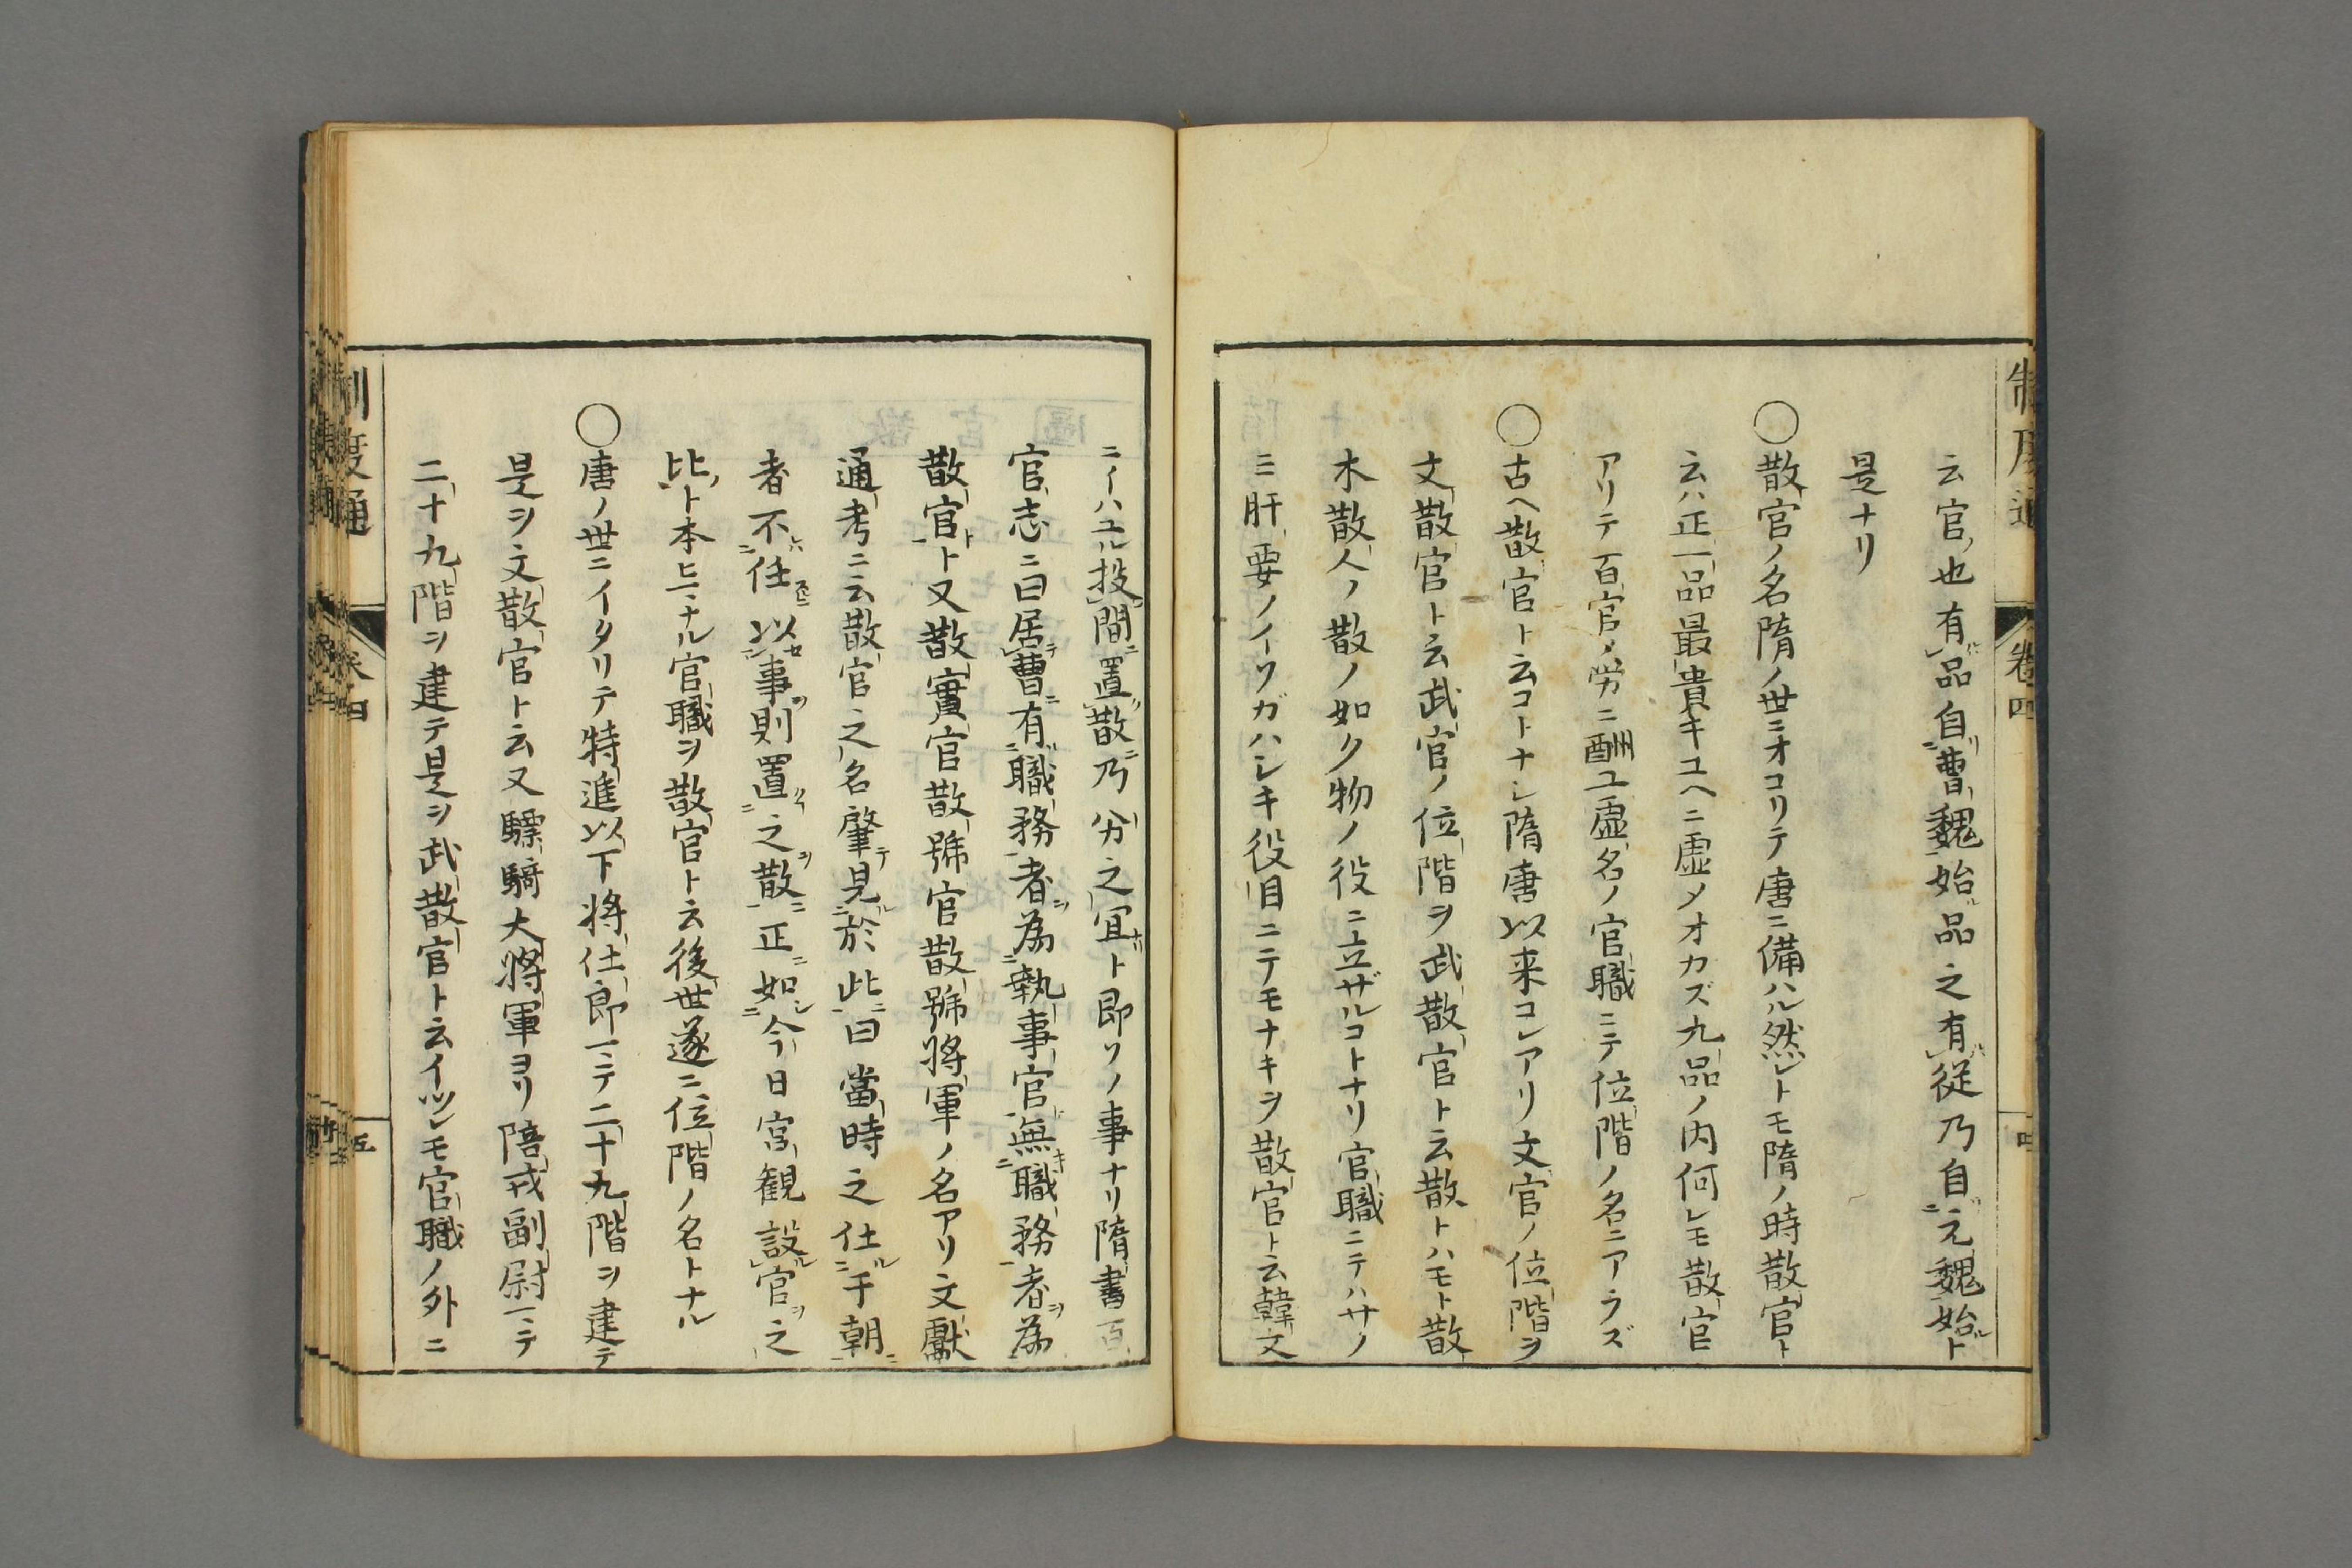 云官也有品自曹魏始品之有従乃自元魏始ト
是ナリ
○散官ノ名隋ノ世ニオコリテ唐ニ備ハル然レトモ隋ノ時散官ト
云ハ正一品最貴キユヘニ虚メオカズ九品ノ内何レモ散官
アリテ百官ノ労ニ酬ユ虚名ノ官職ニテ位階ノ名ニアラズ
○古ヘ散官ト云コトナレ隋唐以来コレアリ文官ノ位階ヲ
文散官ト云武官ノ位階ヲ武散官ト云散トハモト散
木散人ノ散ノ如ク物ノ役ニ立ザルコトナリ官職ニテハサノ
ミ肝要ノイソガハシキ役目ニテモナキヲ散官ト云韓文
ニイハユル投閒置散乃分之宜ト即ソノ事ナリ隋書百
官志ニ曰居曹有職務者為執事官無職務者為
散官ト又散實官散號官散號將軍ノ名アリ文獻
通考ニ云散官之名肇見於此曰當時之仕于朝
者不任以事則置之散正如今日宮観設官之
比ト本ヒマナル官職ヲ散官ト云後世遂ニ位階ノ名トナル
○唐ノ世ニイタリテ特進以下將仕郎マテ二十九階ヲ建テ
是ヲ文散官ト云又驃騎大將軍ヨリ陪戎副尉マテ
二十九階ヲ建テ是ヲ武散官ト云イツレモ官職ノ外ニ
制度通
卷四
五